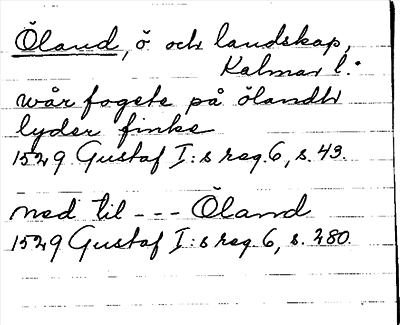 Öland, ö och landskap,
Kalmar l.
wår fogete på ölandh
lyder finke
1529 Gustaf I:s reg. 6, s. 43.
ned til --- Öland
1529 Gustaf I:s reg. 6, s. 280.